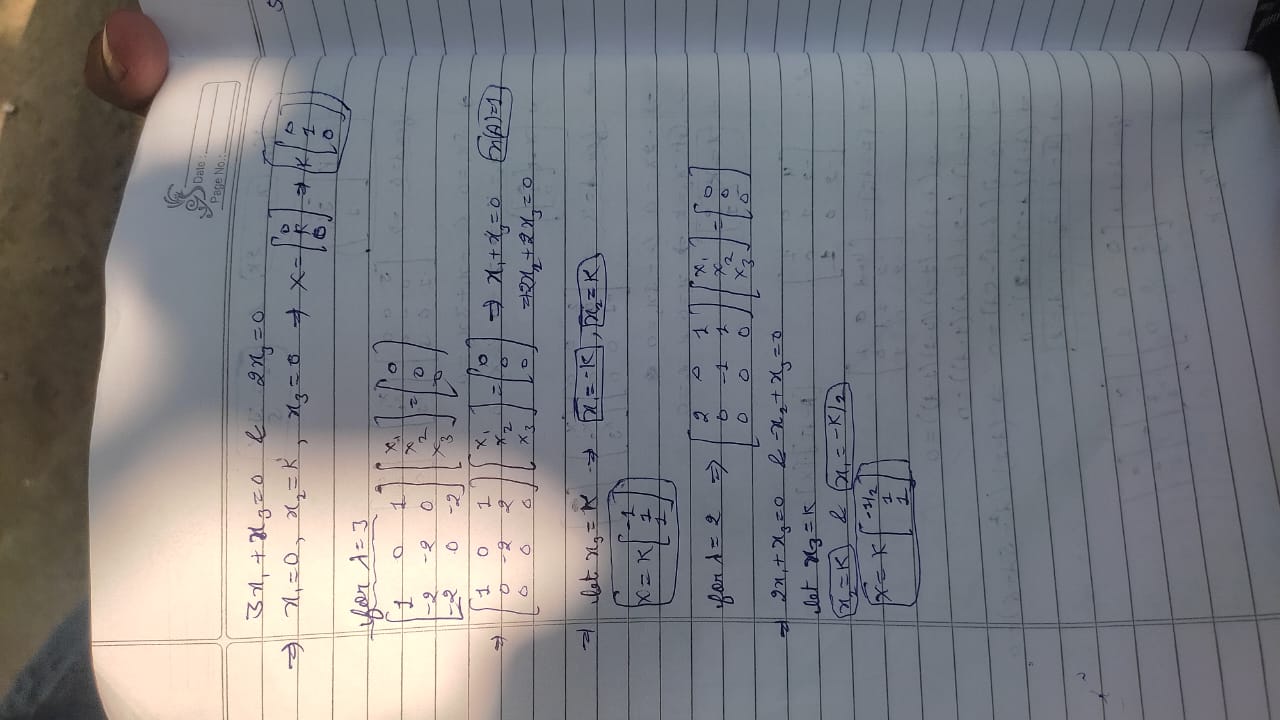 Date :
Page No.:
3x₁ + x₃ = 0 & 2x₃ = 0
⇒ x₁ = 0, x₂ = K, x₃ = 0 ⇒ X = [0 K 0] ⇒ K [0 1 0]
for λ = 3
[1 0 1; -2 -2 0; -2 0 -2] [x₁ x₂ x₃] = [0 0 0]
⇒ [1 0 1; 0 -2 2; 0 0 0] [x₁ x₂ x₃] = [0 0 0] ⇒ x₁ + x₃ = 0
⇒ 2x₂ + 2x₃ = 0
⇒ let x₃ = K ⇒ x₁ = -K, x₂ = K
X = K [-1 1 1]
for λ = 2 ⇒ [2 0 1; 0 -1 1; 0 0 0] [x₁ x₂ x₃] = [0 0 0]
⇒ 2x₁ + x₃ = 0 & -x₂ + x₃ = 0
let x₃ = K
x₂ = K & x₁ = -K/2
X = K [-1/2 1 1]